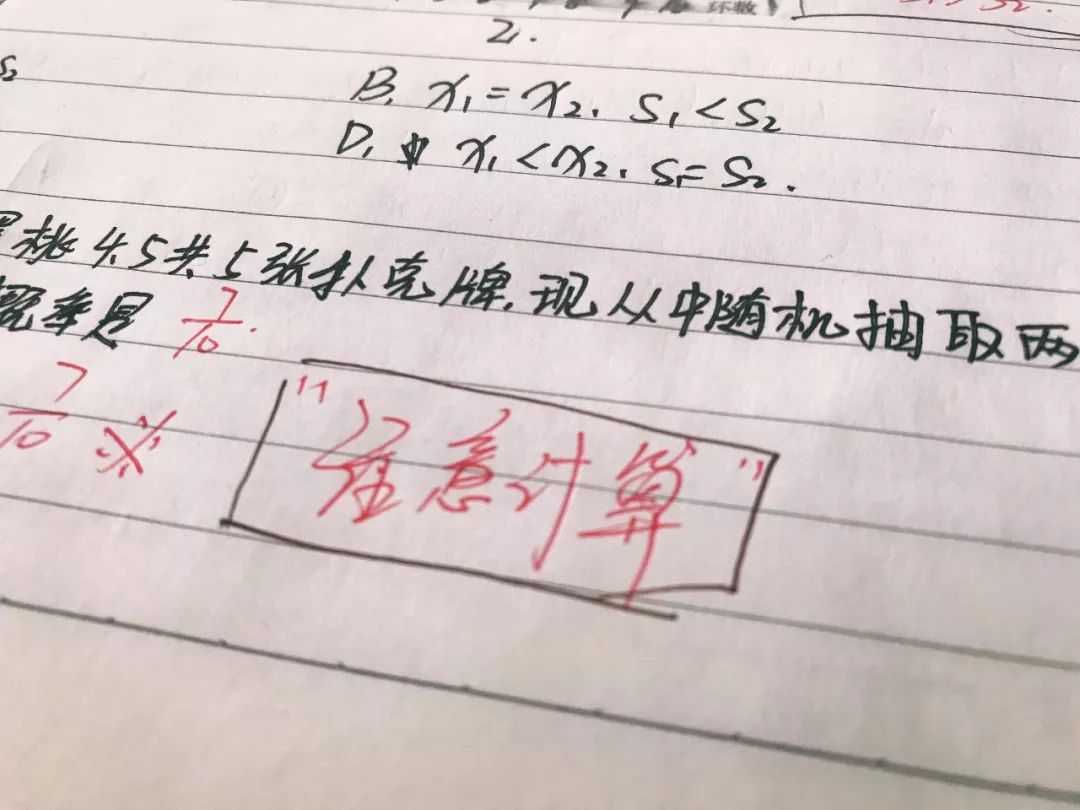 环数
2.
S₂
B. x₁=x₂. S₁<S₂
D. x₁<x₂. S₁=S₂.
桃4.5共5张扑克牌.现从中随机抽取两
概率是 7/10.
7/10 ※
"注意计算"